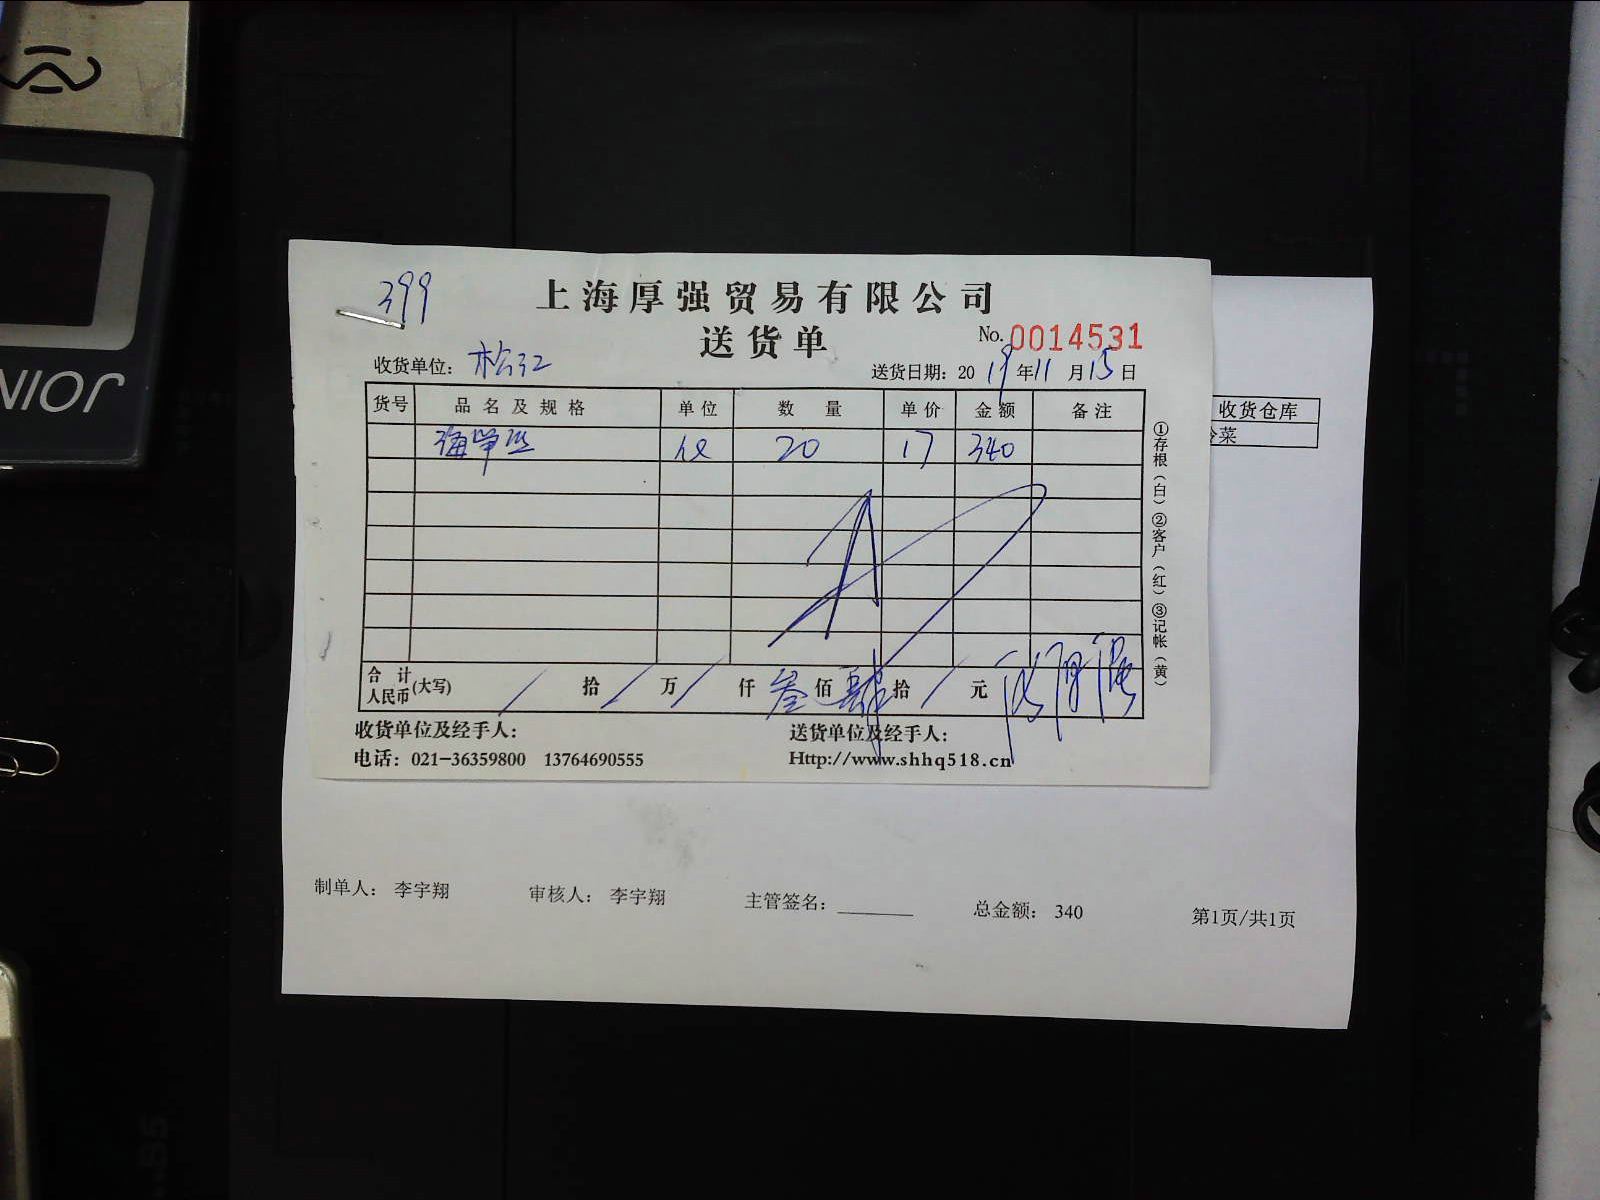 399
上海厚强贸易有限公司
送货单
No. 0014531
收货单位: 松江
送货日期: 2019年11月15日
货号 品名及规格 单位 数量 单价 金额 备注
20 17 340
①存根(白) ②客户(红) ③记帐(黄)
合计人民币(大写) / 拾 / 万 / 仟 叁 佰 肆 拾 / 元
收货单位及经手人:
送货单位及经手人:
电话: 021-36359800 13764690555
Http://www.shhq518.cn
收货仓库
冷菜
制单人: 李宇翔 审核人: 李宇翔 主管签名: 总金额: 340 第1页/共1页
NIOR